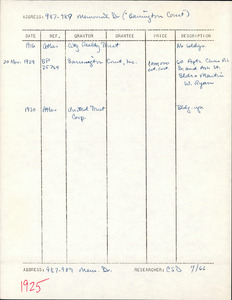 ADDRESS: 987-989 Memorial Dr ("Barrington Court")
DATE REF. GRANTOR GRANTEE PRICE DESCRIPTION
1916 Atlas City Realty Trust No bldgs.
20 Nov. 1924 BP Barrington Court, Inc. 60 Apts.
25765 est. cost and Ash St.
W. Ryan
1930 Atlas United Trust Bldg. up
Corp.
ADDRESS: 987-989 Mem. Dr. RESEARCHER: CSD 7/66
1925